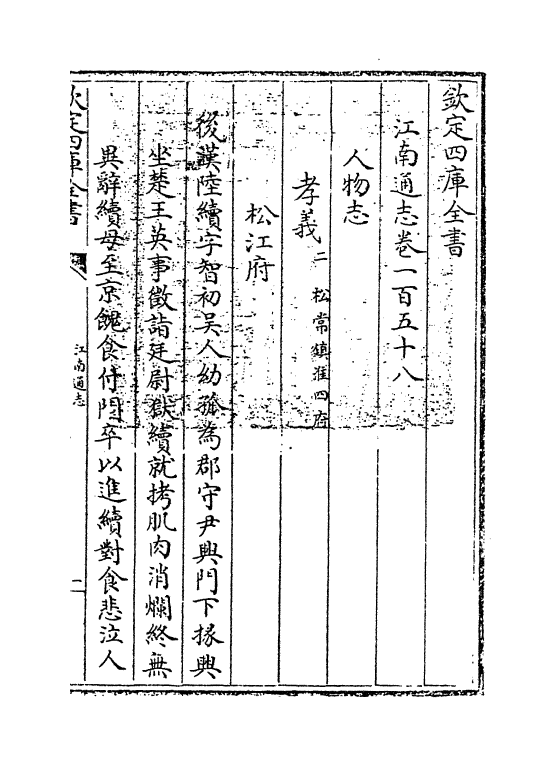 欽定四庫全書
江南通志卷一百五十八
人物志
孝義二 松常鎮淮四府
松江府
後漢陸續字智初吳人幼孤為郡守尹興門下掾興
坐楚王英事徵詣廷尉獄續就拷肌肉消爛終無
異辭續母至京餽食付門卒以進續對食悲泣人
欽定四庫全書
江南通志